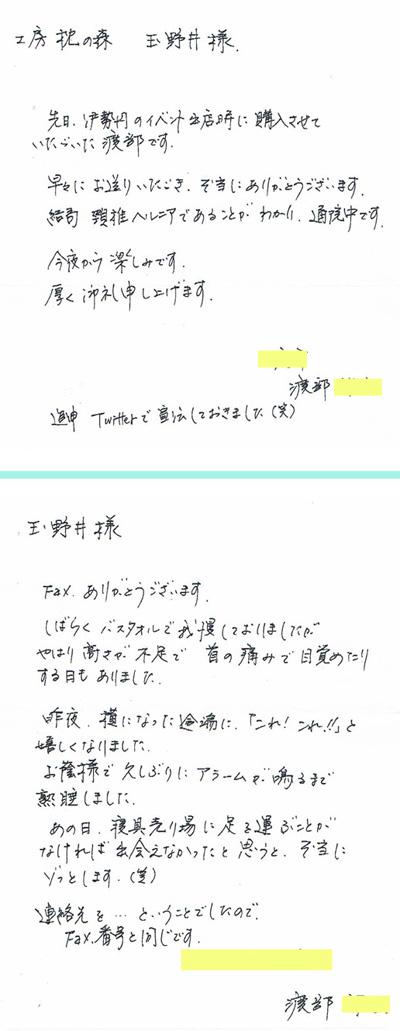 工房 枕の森　玉野井様.
先日、伊勢丹のイベント出店時に購入させて
いただいた渡部です。
早々にお送りいただき、本当にありがとうございます.
結局 頚椎ヘルニアであることがわかり、通院中です.
今夜から楽しみです。
厚く御礼申し上げます.
渡部
追申 Twitterで宣伝しておきました(笑)
玉野井様
Fax、ありがとうございます.
しばらくバスタオルで我慢しておりましたが
やはり高さが不足で 首の痛みで目覚めたり
する日もありました.
昨夜、横になった途端に、「これ!これ!!」と
嬉しくなりました.
お蔭様で久しぶりにアラームが鳴るまで
熟睡しました.
あの日、寝具売り場に足を運ぶことが
なければ出会えなかったと思うと、本当に
ゾッとします.(笑)
連絡先を…ということでしたので、
Fax.番号と同じです.
渡部